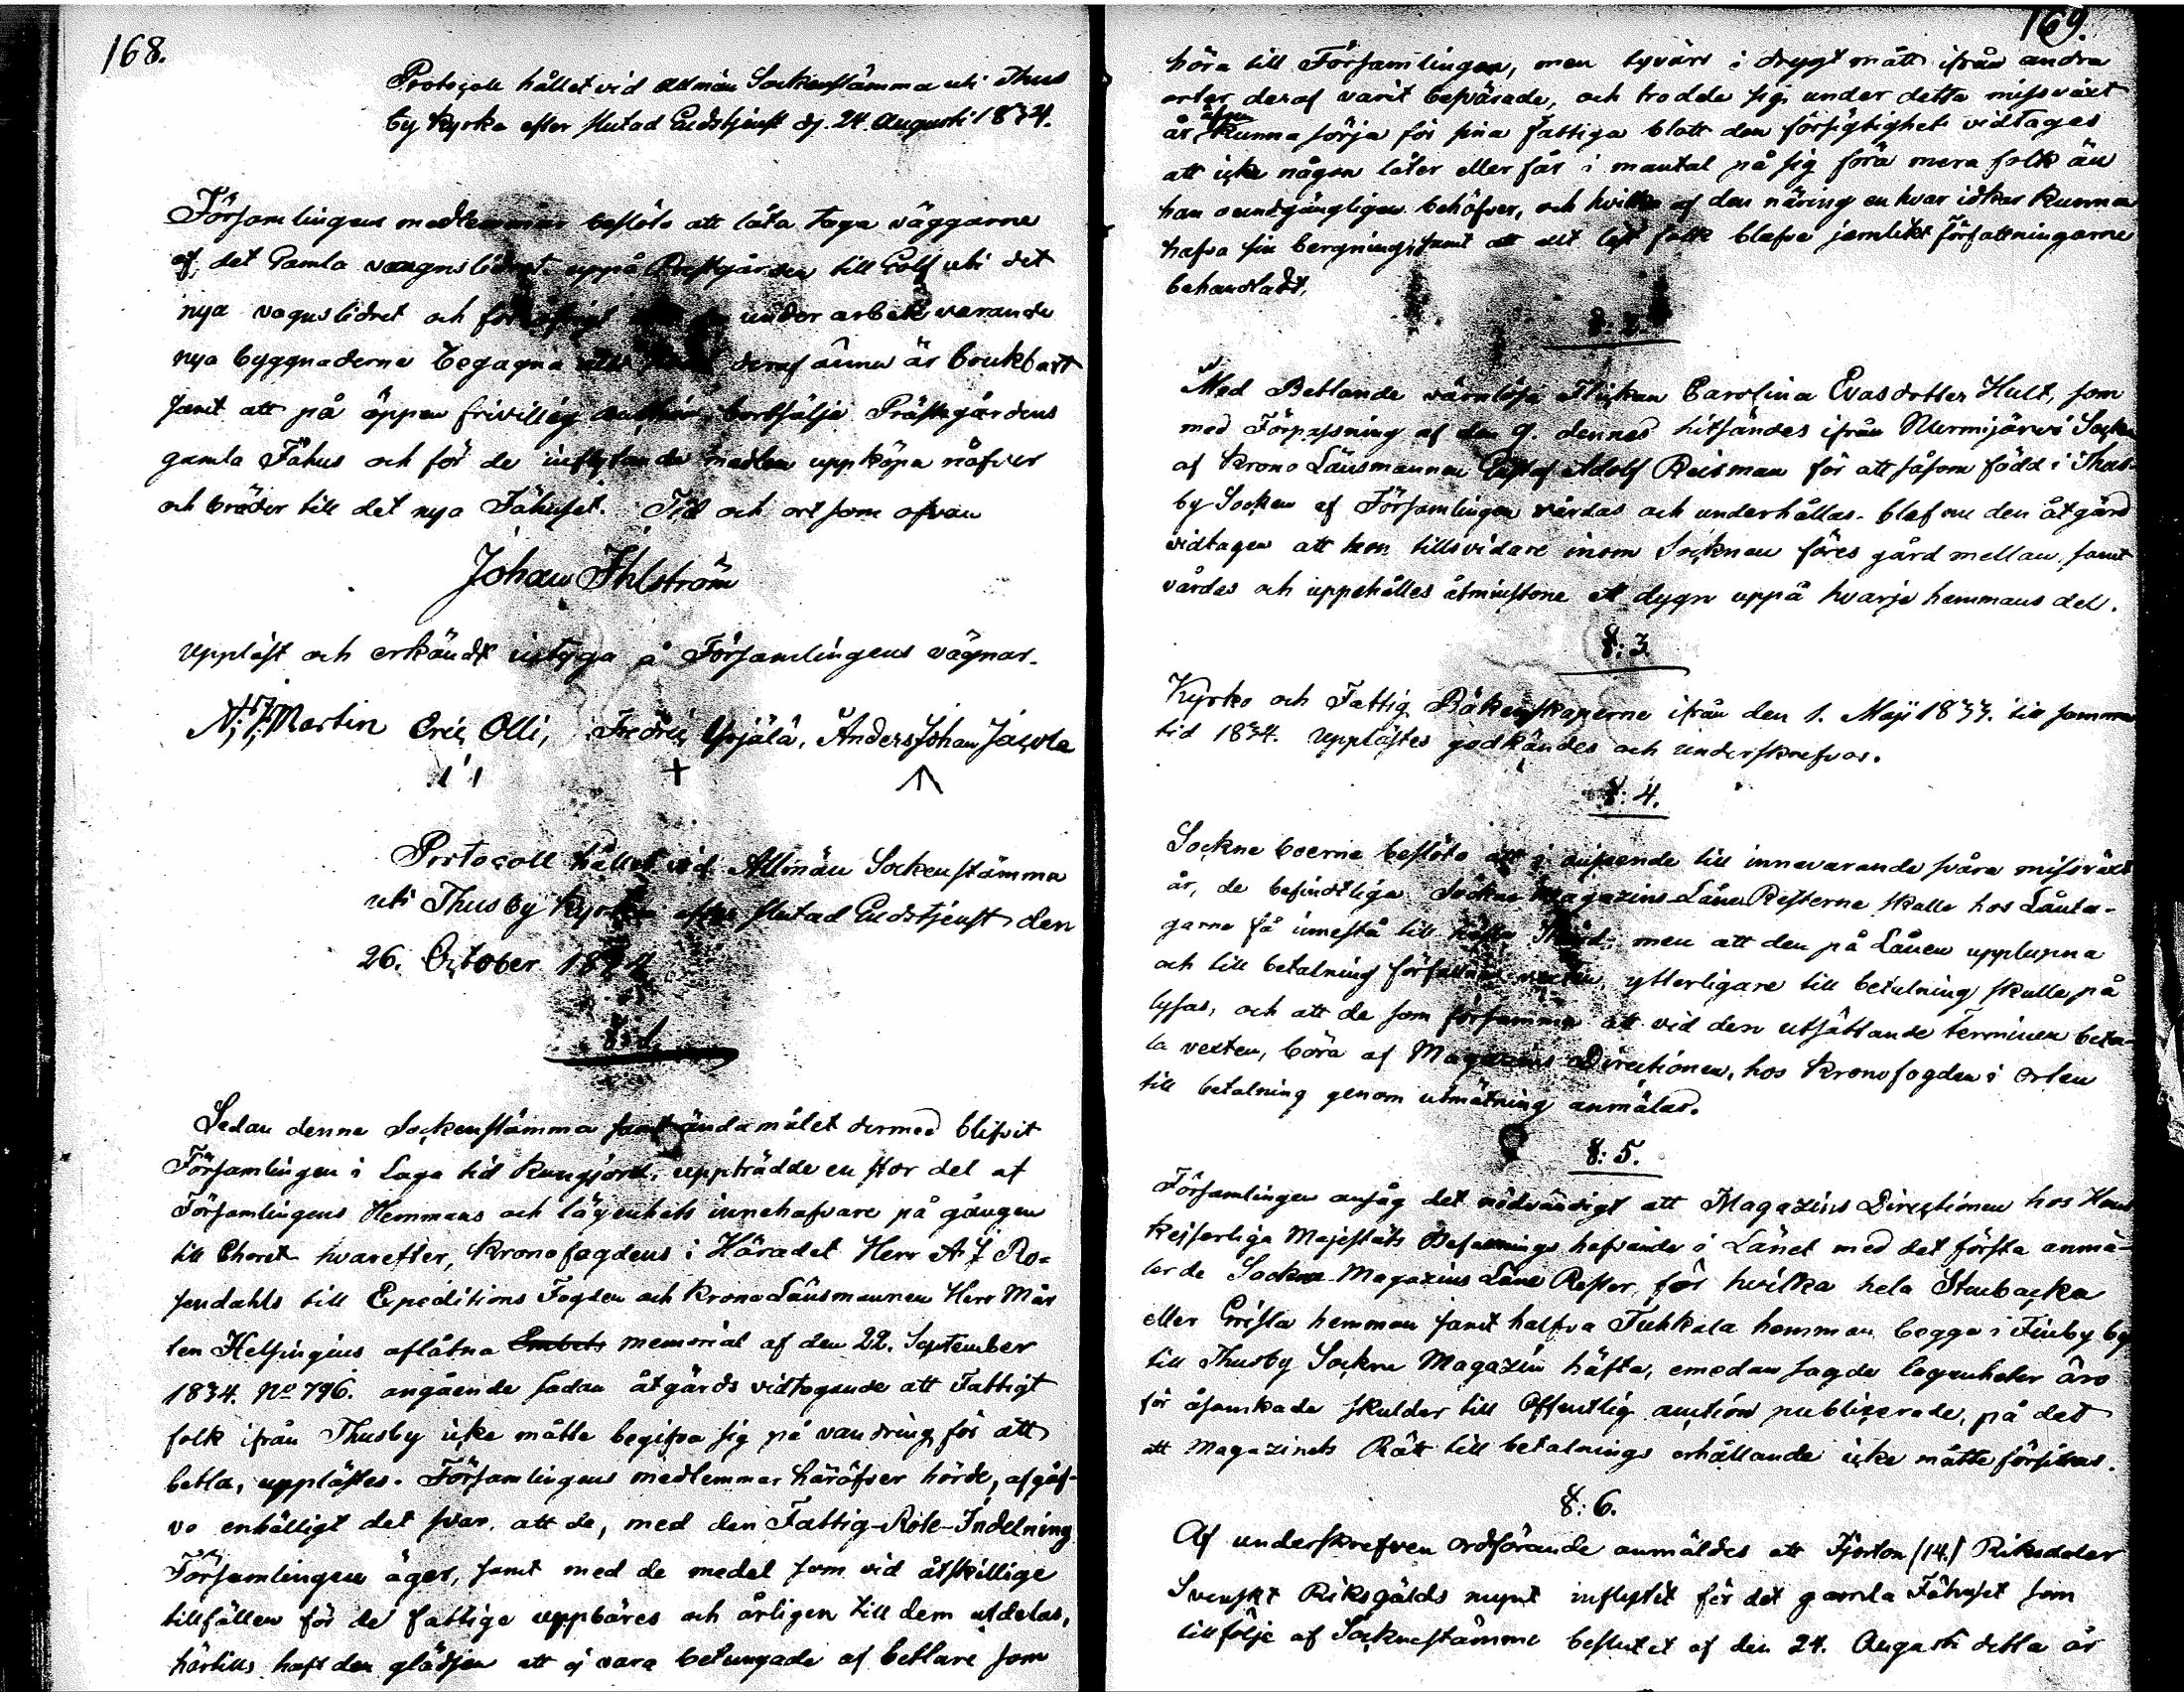 168.
Protocoll hållet vid Allmän Sockenstämma uti Thus
by Kyrka efter slutad Gudstjenst dj. 24. Augusti 1834.
Församlingens medlemmar beslöto att låta taga väggarne
af det Gamla vaugnslidret uppå Prestgården till Golf uti det
nya vagnslidret och för under arbete varande
nya byggnaderne begagna deraf ännu är brukbart
samt att på öppen frivillig auction bortsälja Prästegårdens
gamla Fähus och för de inflytande medlen uppköpa näfver
och bräder till det nya Fähuset. Tid och ort som ofvan
Johan Ihlström
Uppläst och erkändt intyga å Församlingens vägnar.
Martin Eric Olli, Fredric Yrjälä, Anders Johan Jacola
Protocoll hållet vid Allmän Sockenstämma
uti Thusby Kyrka efter slutad Gudstjenst den
26. October 1834
§: 1.
Sedan denna Sockenstämma samt ändamålet dermed blifvit
Församlingen i Laga tid kungjord, uppträdde en stor del af
Församlingens Hemmans och lägenhets innehafvare på gången
till Choret hvarefter, Kronofogdens i Häradet Herr A J Ro-
sendahls till Expeditions Fogden och Krono Länsmannen Herr Mår
ten Helsingius aflåtna Embets memorial af den 22. September
1834. No 796. angående sådan åtgärds vidtagande att Fattigt
folk ifrån Thusby icke måtte begifva sig på vandring för att
betla, upplästes. Församlingens medlemmar häröfver hörde, afgåf-
vo enhälligt det svar, att de, med den Fattig-Rote-Indelning
Församlingen äger, samt med de medel som vid åtskillige
tillfällen för de fattige uppbäres och årligen till dem utdelas,
härtills haft den glädjen att ej vara betungade af betlare som
169.
höra till Församlingen, men tyvärr i drygt mått ifrån andra
orter deraf varit besvärade, och trodde sig under detta missväxt
år äfven kunna sörja för sina fattiga blott den försigtighet vidtages
att icke någon låter eller får i mantal på sig föra mera folk än
han oundgängligen behöfver, och hvilka af den näring en hvar idkar kunna
hafva sin bergning, samt att allt löst folk blefve jemlikt författningarne
behandladt.
§: 2.
Med Betlande värnlösa Flickan Carolina Evasdotter Hult, som
med Förpassning af den 9. dennes hitsändes ifrån Nurmijärvi Socken
af Krono Länsmannen Gustaf Adolf Reisman för att såsom född i Thus-
by Socken af Församlingen vårdas och underhållas. blef nu den åtgärd
vidtagen att hon tillsvidare inom Socknen föres gård mellan, samt
vårdas och uppehålles åtminstone et dygn uppå hvarje hemmans del.
§: 3.
Kyrko och Fattig Räkenskaperne ifrån den 1. Maji 1833. till samma
tid 1834. upplästes godkändes och underskrefvos.
§: 4.
Sockneboerne beslöto att i anseende till innevarande svåra missväxt
år, de befindtliga Sockne Magazins Låne Resterne skulle hos Lånta-
garne få innestå till nästa men att den på Lånen upplupna
och till betalning förfallna vexten, ytterligare till betalning skulle på
lysas, och att de som försumma att vid den utsättande Terminen beta-
la vexten, böra af Magazins Directionen, hos Kronofogden i Orten
till betalning genom utmätning anmälas.
§: 5.
Församlingen ansåg det nödvändigt att Magazins Directionen hos Hans
Kejserliga Majestäts Befallningshafvande i Länet med det första anmä-
ler de Sockne-Magazins Låne Rester, för hvilka hela Stubacka
eller Erista hemman samt halfva Tuhkala hemman begge i Finby by
till Thusby Sockne Magazin häfta, emedan sagde lägenheter äro
för åsamkade skulder till Offentlig auction publicerade, på det
att Magazinets Rätt till betalnings erhållande icke måtte försittas.
§: 6.
Af underskrefven ordförande anmäldes att Fjorton /14./ Riksdaler
Svenskt Riksgälds mynt influtit för det gamla Fähuset som
tillfölje af Socknestämmo beslutet af den 24. Augusti detta år